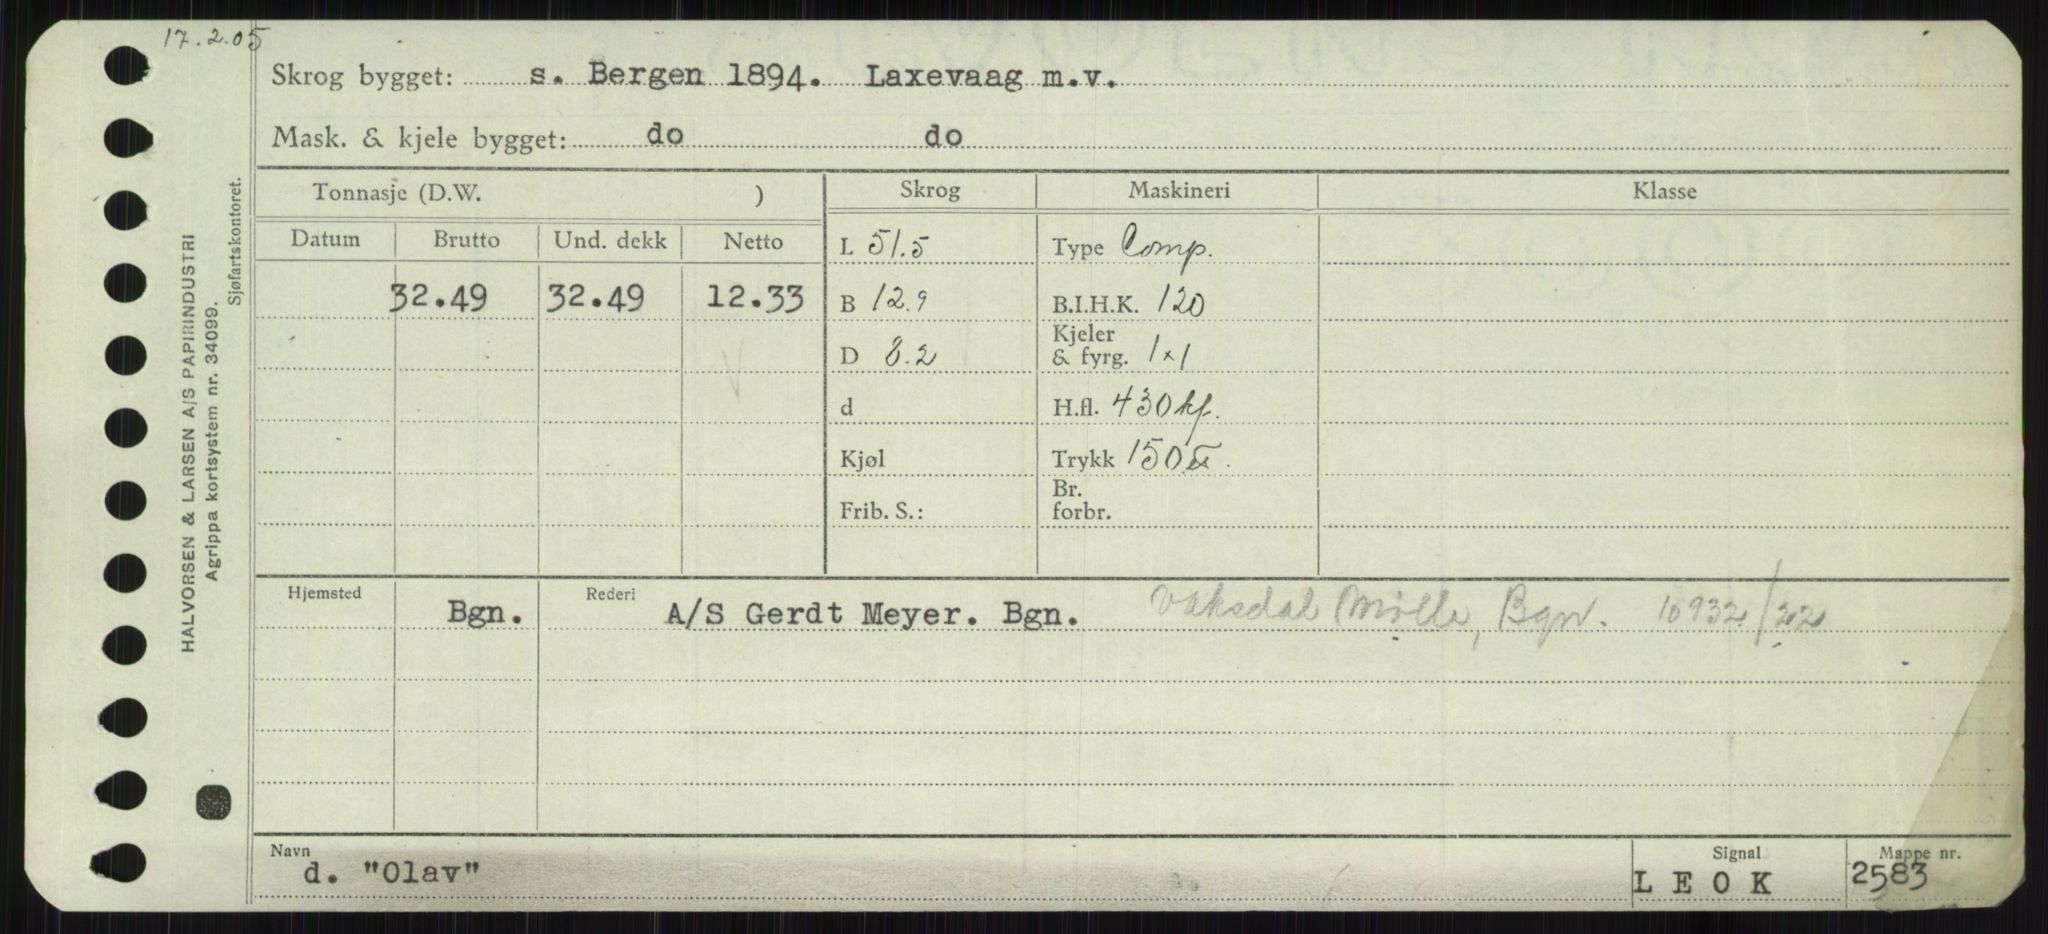 17.2.05
Skrog bygget: s. Bergen 1894. Laxevaag m.v.
Mask. & kjele bygget: do do
Tonnasje (D.W. ) Skrog Maskineri Klasse
Datum Brutto Und. dekk Netto L 51.5 Type Comp.
32.49 32.49 12.33 B 12.9 B.I.H.K. 120
D 8.2 Kjeler & fyrg. 1x1
d H.fl. 430 kf.
Kjøl Trykk 150
Frib. S.: Br. forbr.
Hjemsted Bgn. Rederi A/S Gerdt Meyer. Bgn. Vaksdal Mølle, Bgn. 10932/22
Navn d. "Olav" Signal LEOK Mappe nr. 2583
HALVORSEN & LARSEN A/S PAPIRINDUSTRI
Agrippa kortsystem nr. 34099.
Sjøfartskontoret.